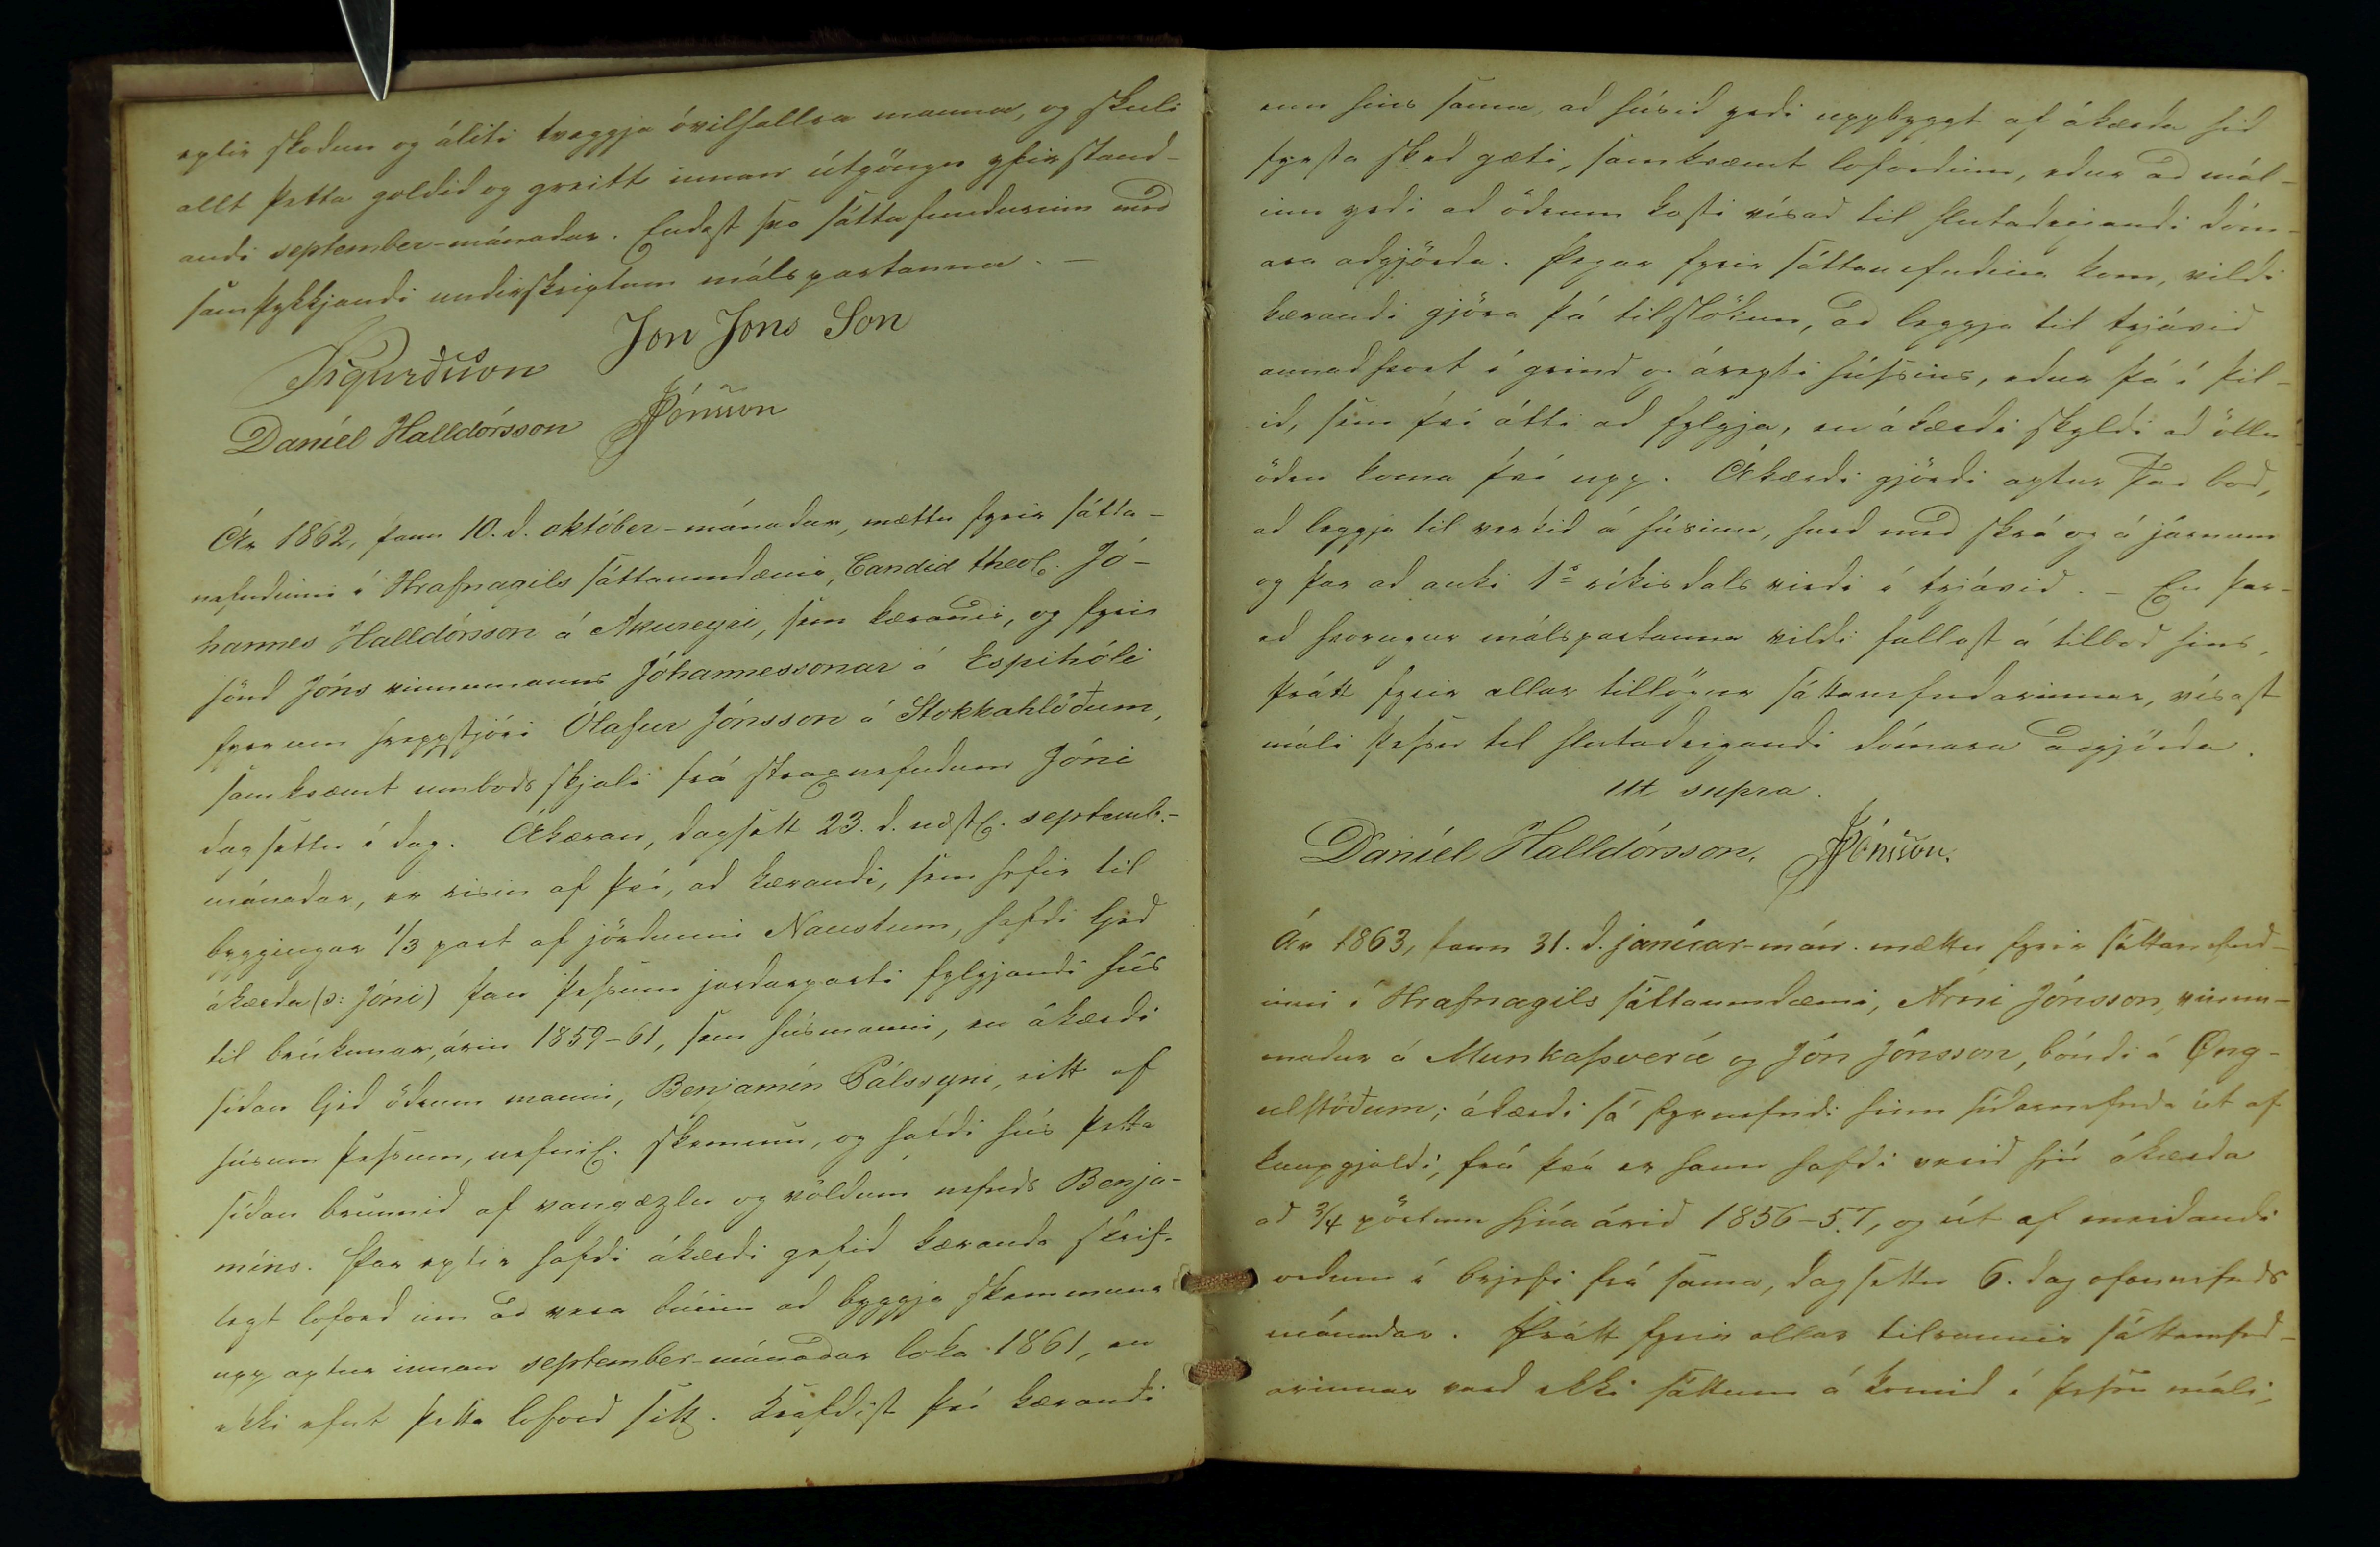 eptir skodun og áliti tveggja óvilhallra manna, og skuli
allt þetta goldid og greitt innan útgöngu yfirstand-
andi september-mánadar. Endast svo sáttafundurinn med
samþykkjandi underskriptum málspartanna. —
Jon Jons Son
Sigurðsson
Daníel Halldórsson JJónsson
Ár 1862, þann 10. d. október-mánadar, mættu fyrir sátta-
nefndinni í Hrafnagils sáttaumdæmi, Candid theol. Jó-
hannes Halldórsson á Akureyri, sem kærandi, og fyrir
hönd Jóns vinnumanns Jóhannessonar á Espihóli
fyrrum hreppstjóri Ólafur Jónsson á Stokkahlöðum,
samkvæmt umbodsskjali frá straxnefndum Jóni
dagsettu í dag. Ákæran, dagsett 23. d. næstl. septemb.-
mánadar, er risin af því, ad kærandi, sem hefir til
byggingar 1/3 part af jördunni Naustum, hafdi ljed
ákærda (ɔ: Jóni) þau þessum jardarparti fylgjandi hús
til brúkunar, árin 1859-61, sem húsmanni, en ákærdi
sídan ljed ödrum manni, Benjamín Pálssyni, eitt af
húsum þessum, nefnil. skemmu, og hafdi hús þetta
sídan brunnid af vangæzlu og völdum nefnds Benja-
míns. Þar eptir hafdi ákærdi gefid kæranda skrif-
legt loford um ad vera búinn ad byggja skemmuna
upp aptur innan september-mánadar loka 1861, en
ekki efnt þetta loford sitt. Krafdist því kærandi
enn hins sama, ad húsid yrdi uppbyggt af ákærda hid
fyrsta sked gæti, samkvæmt lofordinu, edur ad mál-
inu yrdi ad ödrum kosti vísad til hlutadeigandi dóm-
ara adgjörda. Þegar fyrir sáttanefndina kom, vildi
kærandi gjöra þá tilslökun, ad leggja til trjávid
annadhvort í grind og árepti hússins, edur þá í þil-
id, sem því átti ad fylgja, en ákærdi skyldi ad öllu
ödru koma því upp. Ákærdi gjördi aptur það bod,
ad leggja til verkid á húsinu, hurd med skrá og á járnum
og þar ad auki 1s ríkisdals virdi í trjávid. — En þar-
ed hvorugur málspartanna vildi fallast á tilbod hins,
þrátt fyrir allar tillögur sáttanefndarinnar, vísast
máli þessu til hlutadeigandi dómara adgjörda.
ut supra.
Daníel Halldórsson. JJónsson.
Ár 1863, þann 31. d. janúar-mán. mættu fyrir sáttanefnd-
inni í Hrafnagils sáttaumdæmi, Arni Jónsson, vinnu-
madur á Munkaþverá og Jón Jónsson, bóndi á Öng-
ulstöðum; ákærdi sá fyrnefndi hinn sídarnefnda út af
kaupgjaldi, frá því er hann hafdi verid hjú ákærda
ad 3/4 pörtum hjúa árid 1856-57, og út af meidandi
ordum í brjefi frá sama, dagsettu 6. dag ofannefnds
mánadar. Þrátt fyrir allar tilraunir sáttanefnd-
arinnar vard ekki sáttum á komid í þessu máli,